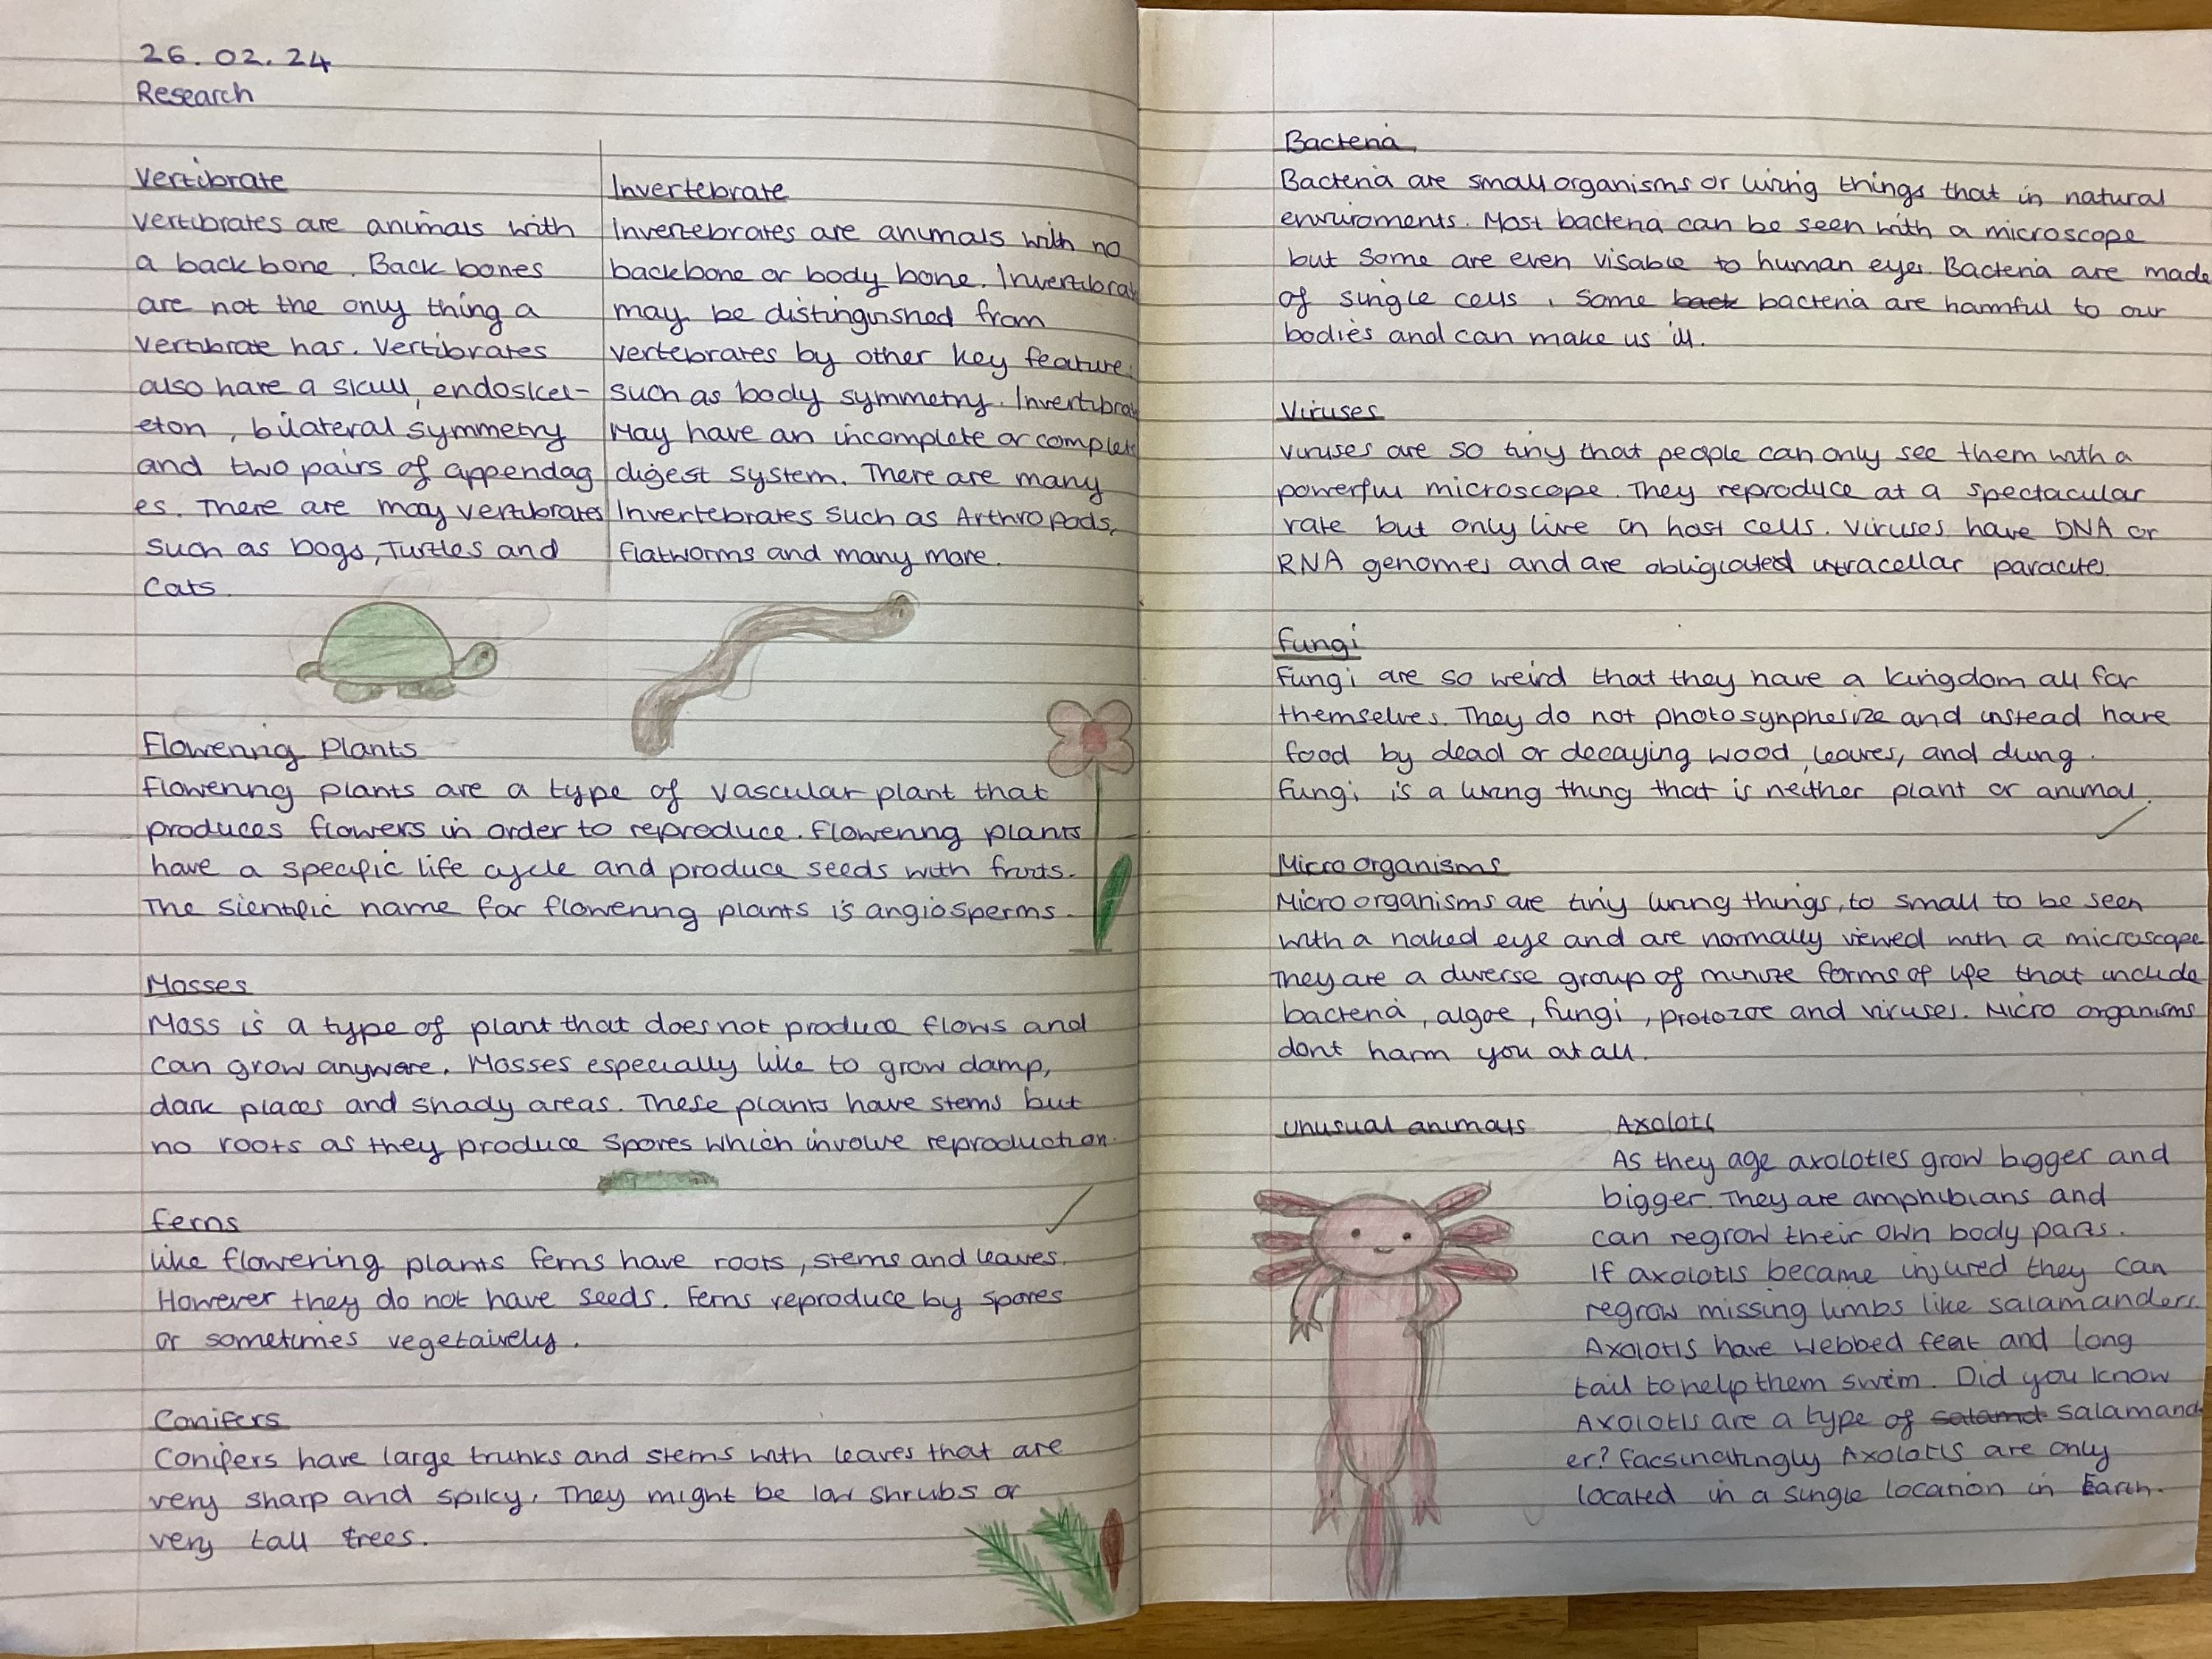 26.02.24
Research
Vertibrate
Vertibrates are animals with
a backbone. Back bones
are not the only thing a
vertibrate has. Vertibrates
also have a skull, endoskel-
eton, bilateral symmetry
and two pairs of appendag
es. There are may vertibrates
such as Dogs, Turtles and
Cats.
Invertebrate
Invertebrates are animals with no
backbone or body bone. Invertibra
may be distinguished from
vertebrates by other key feature
such as body symmetry. Invertibra
May have an incomplete or complete
digest system. There are many
Invertebrates such as Arthropods,
flatworms and many more.
Flowering Plants
flowering plants are a type of vascular plant that
produces flowers in order to reproduce. flowering plants
have a specific life cycle and produce seeds with fruits.
The sientific name for flowering plants is angiosperms.
Mosses
Moss is a type of plant that does not produce flows and
can grow anyware. Mosses especially like to grow damp,
dark places and shady areas. These plants have stems but
no roots as they produce spores which involve reproduction.
Ferns
like flowering plants ferns have roots, stems and leaves.
However they do not have seeds. Ferns reproduce by spores
or sometimes vegetaively.
Conifers
Conifers have large trunks and stems with leaves that are
very sharp and spiky. They might be low shrubs or
very tall trees.
Bacteria.
Bacteria are small organisms or living things that in natural
enviroments. Most bacteria can be seen with a microscope
but some are even visable to human eyes. Bacteria are made
of single cells. Some bact bacteria are harmful to our
bodies and can make us ill.
Viruses
viruses are so tiny that people can only see them with a
powerful microscope. They reproduce at a spectacular
rate but only live in host cells. Viruses have DNA or
RNA genomes and are intracellar paracites.
Fungi
Fungi are so weird that they have a kingdom all for
themselves. They do not photosynphesize and instead have
food by dead or decaying wood, leaves, and dung.
Fungi is a living thing that is neither plant or animal.
Micro organisms
Micro organisms are tiny living things, to small to be seen
with a naked eye and are normally viewed with a microscope
They are a diverse group of minute forms of life that include
bacteria, algae, fungi, protozoe and viruses. Micro organisms
dont harm you at all.
Unusual animals Axolotl
As they age axolotles grow bigger and
bigger. They are amphibians and
can regrow their own body parts.
If axolotls became injured they can
regrow missing limbs like salamanders.
Axolotls have webbed feat and long
tail to help them swim. Did you know
Axolotls are a type of salamd salamand
er? facsinatingly Axolotls are only
located in a single location in Earth.